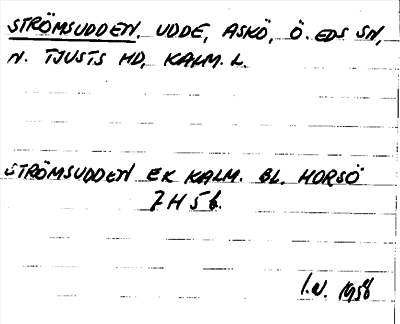 STRÖMSUDDEN, UDDE, ASKÖ, Ö. EDS SN,
N. TJUSTS HD, KALM. L.
STRÖMSUDDEN EK KALM. BL. HORSÖ
7 H 5 b.
I.N. 1958